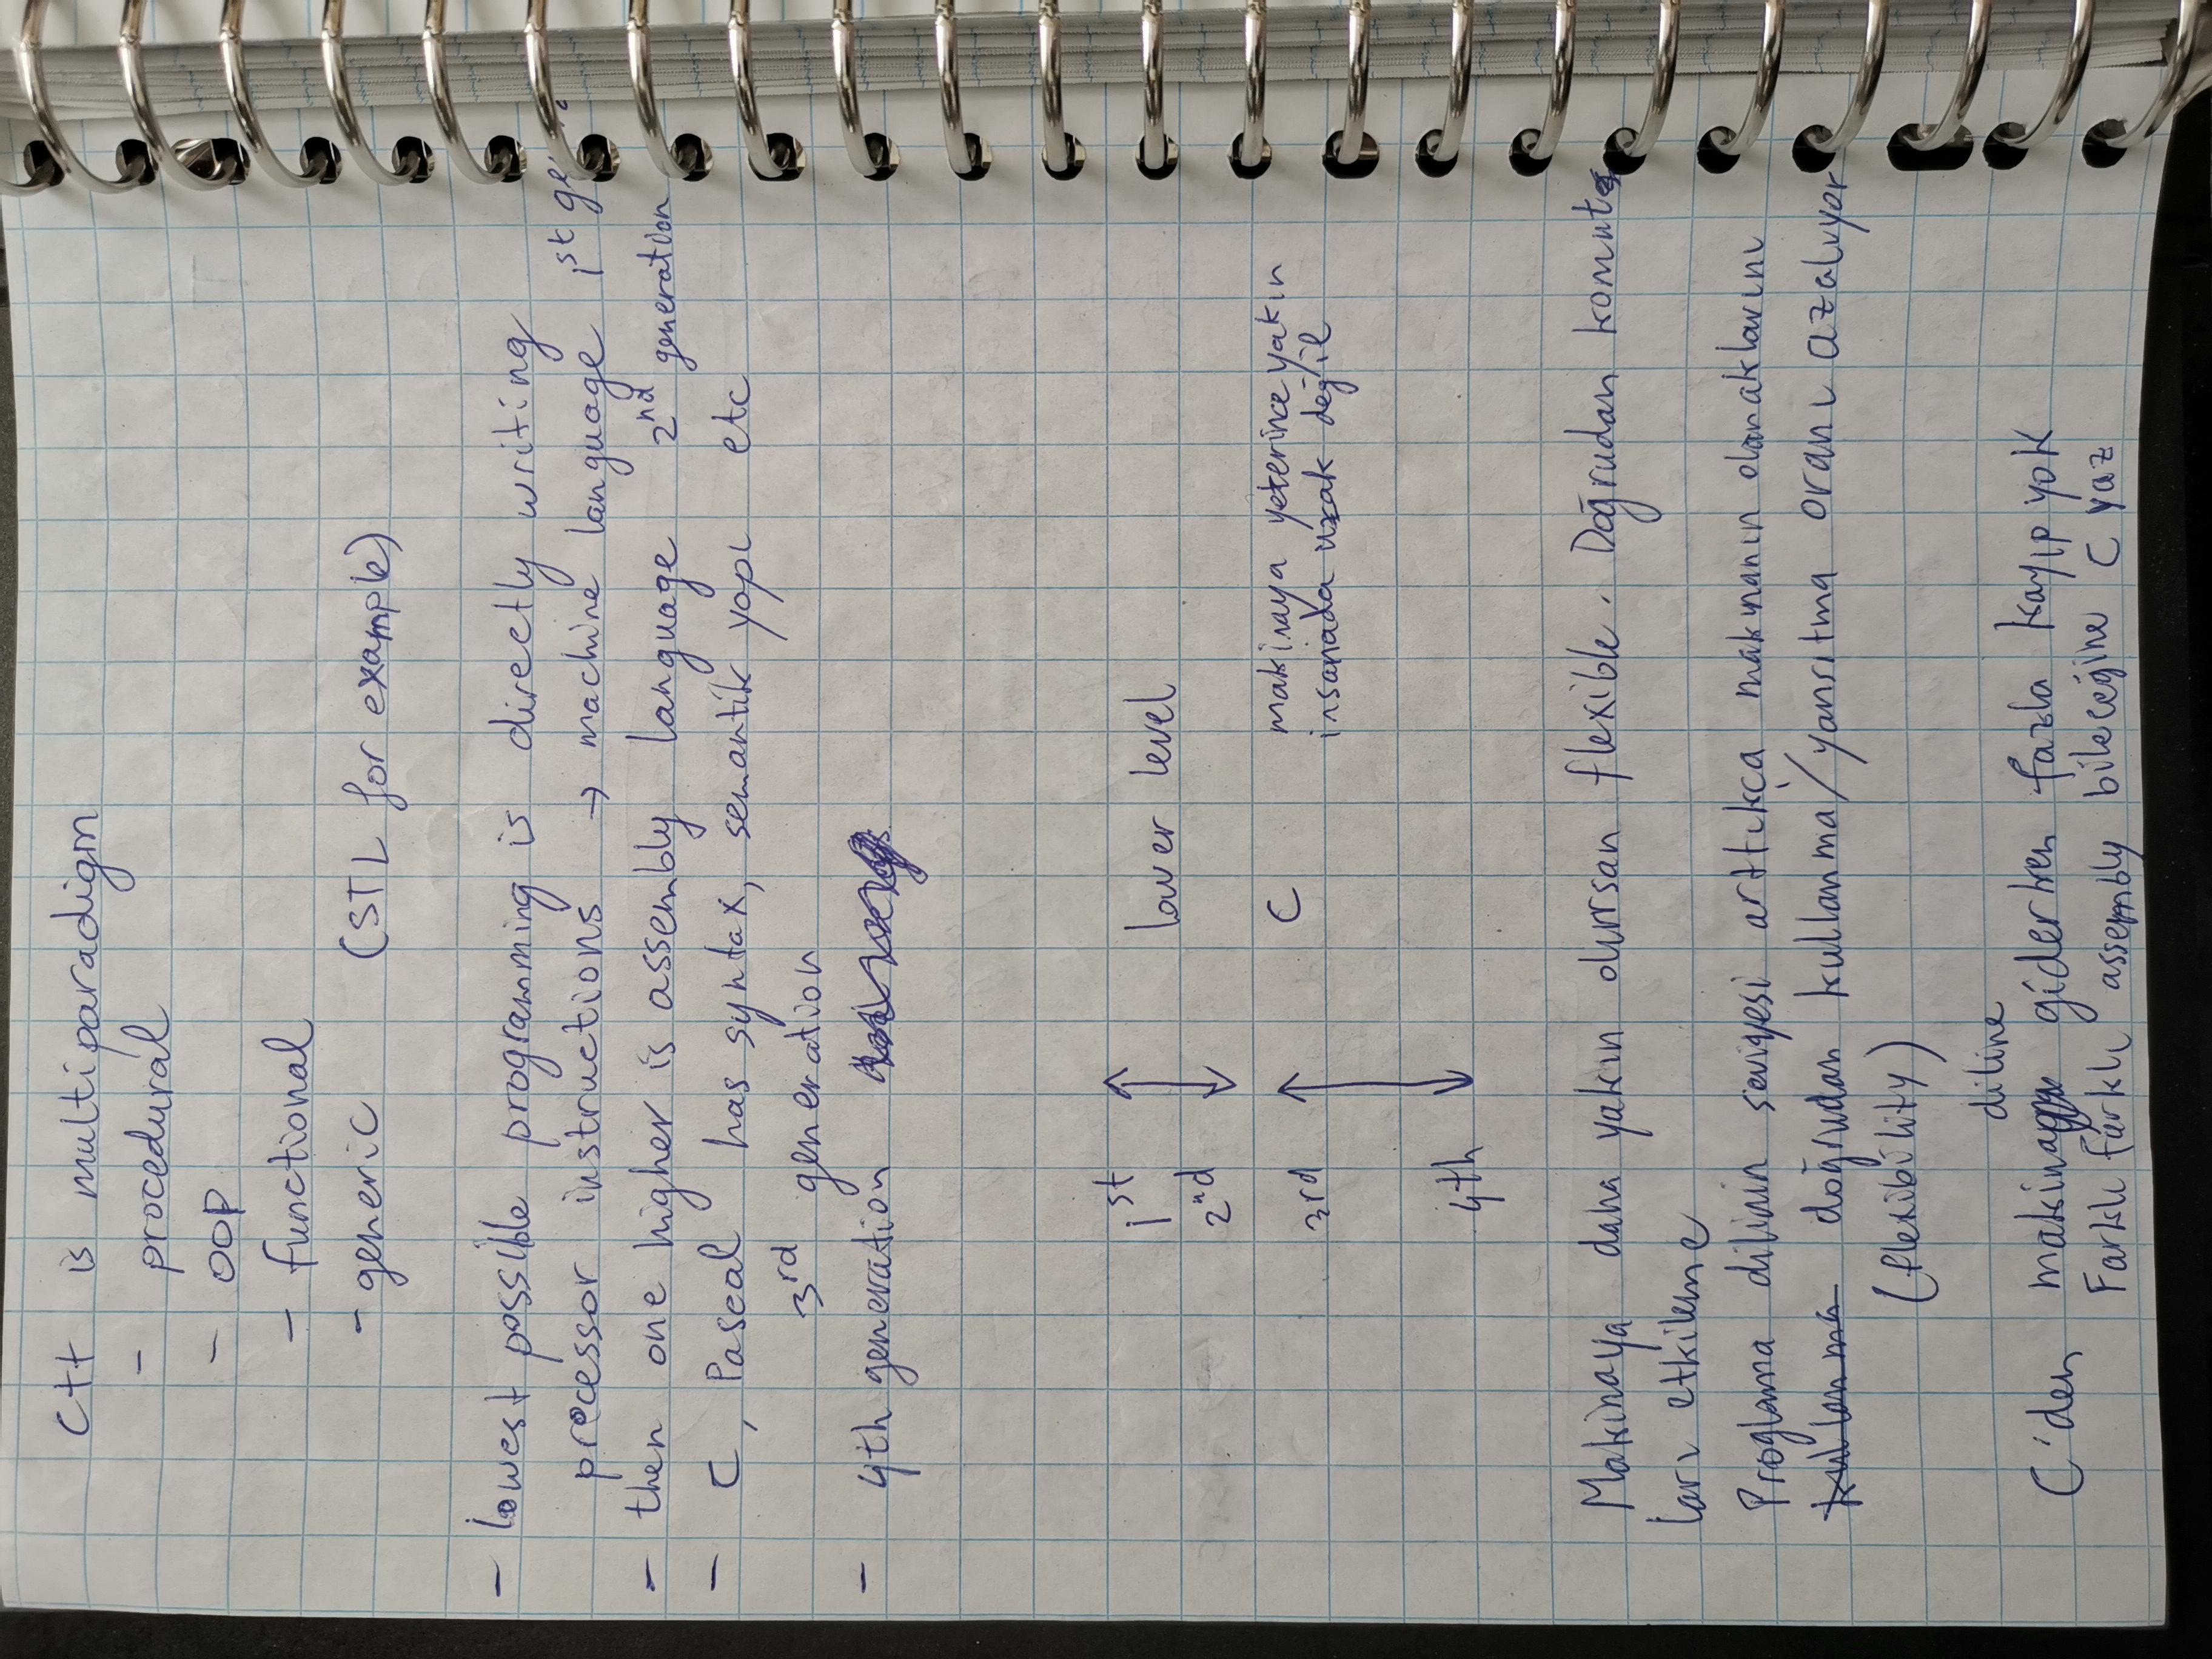 C++ is multiparadigm
- procedural
- OOP
- functional
- generic (STL for example)
- lowest possible programming is directly writing
processor instructions → machine language 1st ge
- then one higher is assembly language 2nd generation
- C, Pascal has syntax, semantik yapı etc
3rd generation
- 4th generation
1st
2nd
lower level
3rd
C
makinaya yeterince yakın
insanada uzak değil
4th
Makinaya daha yakın olursan flexible. Doğrudan komut
ları etkileme
Proglama dilinin seviyesi arttıkça makinanın olanaklarını
kullanma doğrudan kullanma/yansıtma oranı azalıyor
(flexibility)
diline
C'den makina giderken fazla kayıp yok
Farklı farklı assembly bileceğine C yaz